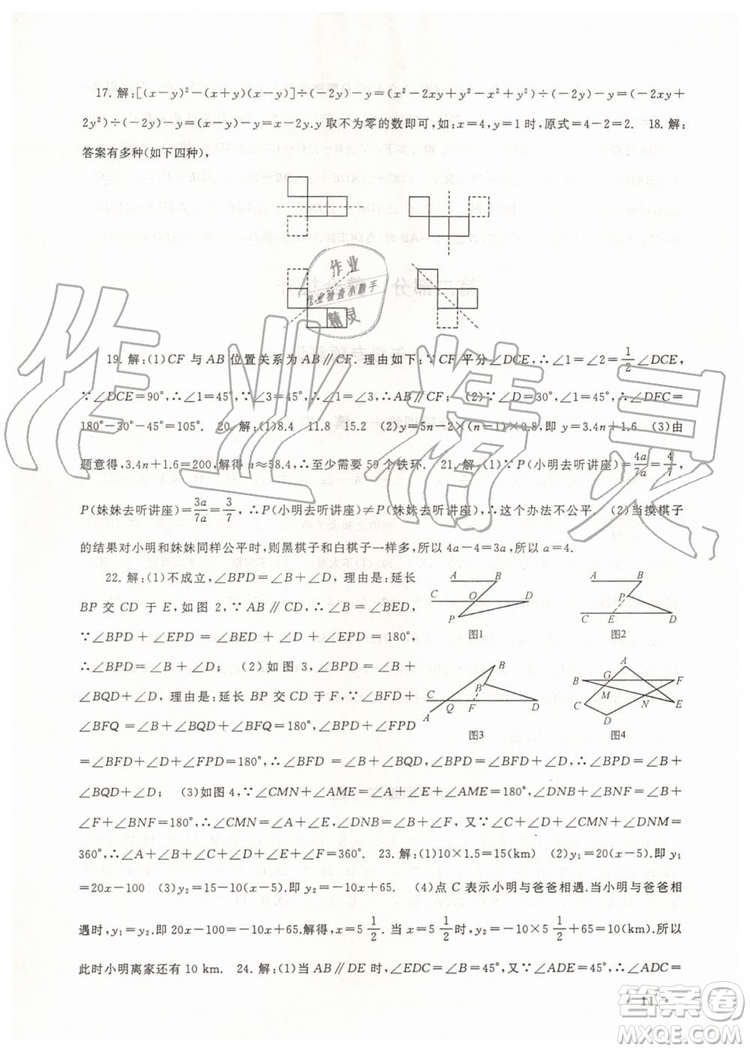 17. 解:[(x－y)²－(x＋y)(x－y)]÷(－2y)－y＝(x²－2xy＋y²－x²＋y²)÷(－2y)－y＝(－2xy＋
2y²)÷(－2y)－y＝x－y－y＝x－2y.y 取不为零的数即可,如:x＝4,y＝1 时,原式＝4－2＝2. 18. 解:
答案有多种(如下四种),
作业
作业检查小助手
精灵
19. 解:(1)CF 与 AB 位置关系为 AB∥CF. 理由如下:∵CF 平分∠DCE,∴∠1＝∠2＝1/2∠DCE,
∵∠DCE＝90°,∴∠1＝45°,∵∠3＝45°,∴∠1＝∠3,∴AB∥CF. (2)∵∠D＝30°,∠1＝45°,∴∠DFC＝
180°－30°－45°＝105°. 20. 解:(1)8.4 11.8 15.2 (2)y＝5n－2×(n－1)×0.8,即 y＝3.4n＋1.6 (3)由
题意得,3.4n＋1.6＝200,解得 n≈58.4,∴至少需要 59 个铁环. 21. 解:(1)∵P(小明去听讲座)＝4a/7a＝4/7,
P(妹妹去听讲座)＝3a/7a＝3/7,∴P(小明去听讲座)≠P(妹妹去听讲座),∴这个办法不公平. (2)当摸棋子
的结果对小明和妹妹同样公平时,则黑棋子和白棋子一样多,所以 4a－4＝3a,所以 a＝4.
22. 解:(1)不成立,∠BPD＝∠B＋∠D,理由是:延长
BP 交 CD 于 E,如图 2,∵AB∥CD,∴∠B＝∠BED,
∵∠BPD＋∠EPD＝∠BED＋∠D＋∠EPD＝180°,
∴∠BPD＝∠B＋∠D; (2)如图 3,∠BPD＝∠B＋
∠D＋∠BQD,理由是:延长 BP 交 CD 于 F,∵∠B＋
∠BQF＋∠BFQ＝∠BFD＋∠BFQ＝∠BPD＋∠FPD
＝∠BFD＋∠D＋∠FPD＝180°,∴∠BFD＝∠B＋∠BQD,∠BPD＝∠BFD＋∠D,∴∠BPD＝∠B＋
∠D＋∠BQD. (3)如图 4,∵∠CMN＋∠AME＝180°,∴∠CMN＝∠A＋∠E,∵∠DNB＋∠BNF＝∠B＋
∠F＋∠BNF＝180°,∴∠DNB＝∠B＋∠F,又∵∠C＋∠D＋∠CMN＋∠DNB＝360°,∴∠A＋∠B＋∠C
＋∠D＋∠E＋∠F＝360°. 23. 解:(1)10×1.5＝15(km) (2)y₁＝20(x－5),即 y₁
＝20x－100 (3)y₂＝－10(x－6.5),即 y₂＝－10x＋65. (4)点 C 表示小明与爸爸相遇.当小明与爸爸相
遇时,y₁＝y₂,即 20x－100＝－10x＋65,解得,x＝5 1/2. 当 x＝5 1/2时,y₂＝－10×5 1/2＋65＝10. 所以
此时小明离家还有 10 km. 24. 解:(1)当 AB∥DE 时,∠EDC＝∠B＝45°,又∵∠C＝45°,∴∠ADC＝
A B
C O D
P
图1
A B
P
C E D
图2
B
P
C
A Q F D
图3
A
B G F
M N
C E
D
图4
作业精灵
· 11 ·
答案圈
MXQE.COM